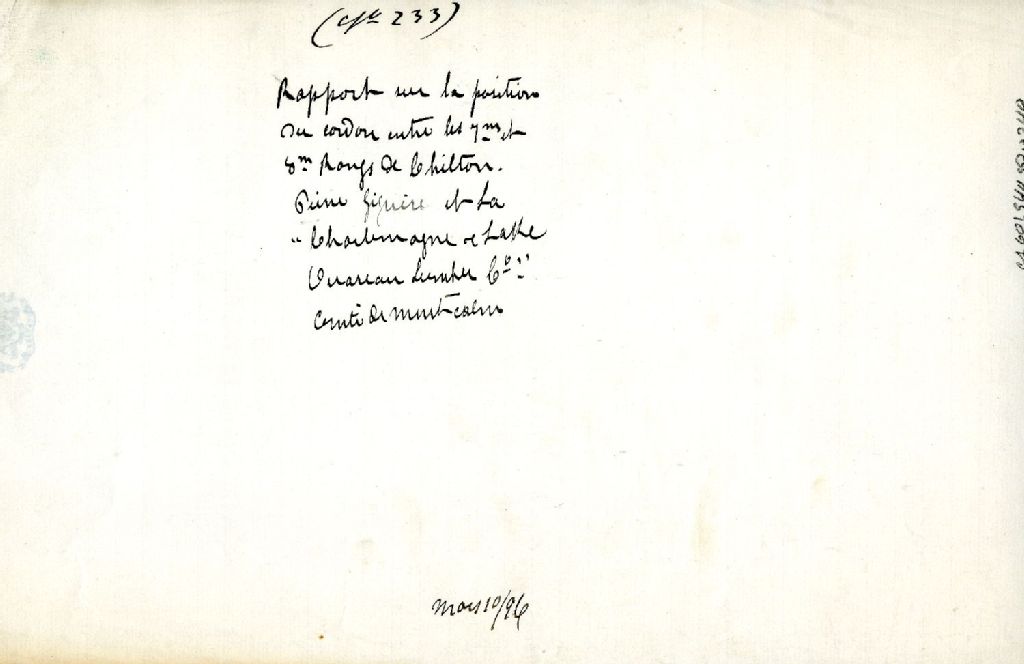 (Cple 233)
Rapport sur la position
du cordon entre les 7me et
8me Rangs de Chilton.
Pierre Giguère et La
"Charlemagne & Lake
Ouareau Lumber Co."
Comté de Montcalm
Mars 10/96